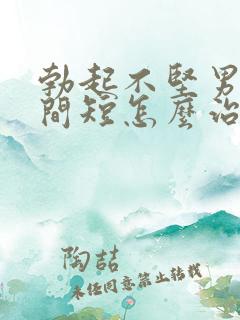 勃起不堅男
間短怎麼治
陶喆
未经同意禁止转载